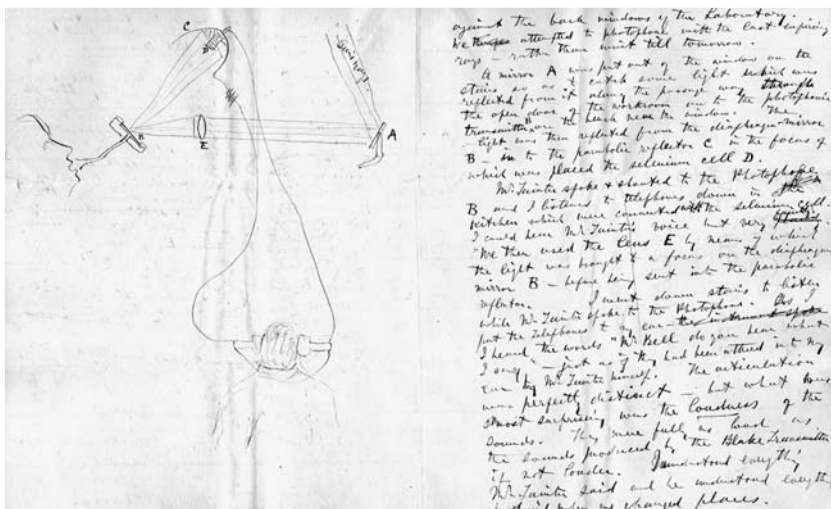 C
Sunlight
B
E
A
against the back windows of the Laboratory.
We attempted to photophone with the last expiring
rays — rather than wait till tomorrow.
A mirror A was put out of the window on the
stairs so as to catch some light which was
reflected from it along the passage way through
the open door of the workroom on to the photophonic
transmitter B on the bench near the window. The
light was then reflected from the diaphragm-mirror
B — on to the parabolic reflector C in the focus of
which was placed the selenium cell D.
Mr. Tainter spoke & shouted to the Photophone
B and I listened to telephones down in the
kitchen which were connected with the selenium cell.
I could hear Mr. Tainter's voice but very
We then used the lens E by means of which
the light was brought to a focus on the diaphragm
mirror B — before being sent into the parabolic
reflector. I went down stairs to listen
while Mr. Tainter spoke to the Photophone. As I
put the telephones to my ear — the instrument spoke
I heard the words "Mr. Bell do you hear what
I say" — just as if they had been uttered into my
ear by Mr. Tainter himself. The articulation
was perfectly distinct — but what was
most surprising was the loudness of the
sounds. They were full as loud as
the sounds produced by the Blake Transmitter
if not louder. I understood everything
Mr. Tainter said and he understood everything
I said when we changed places.